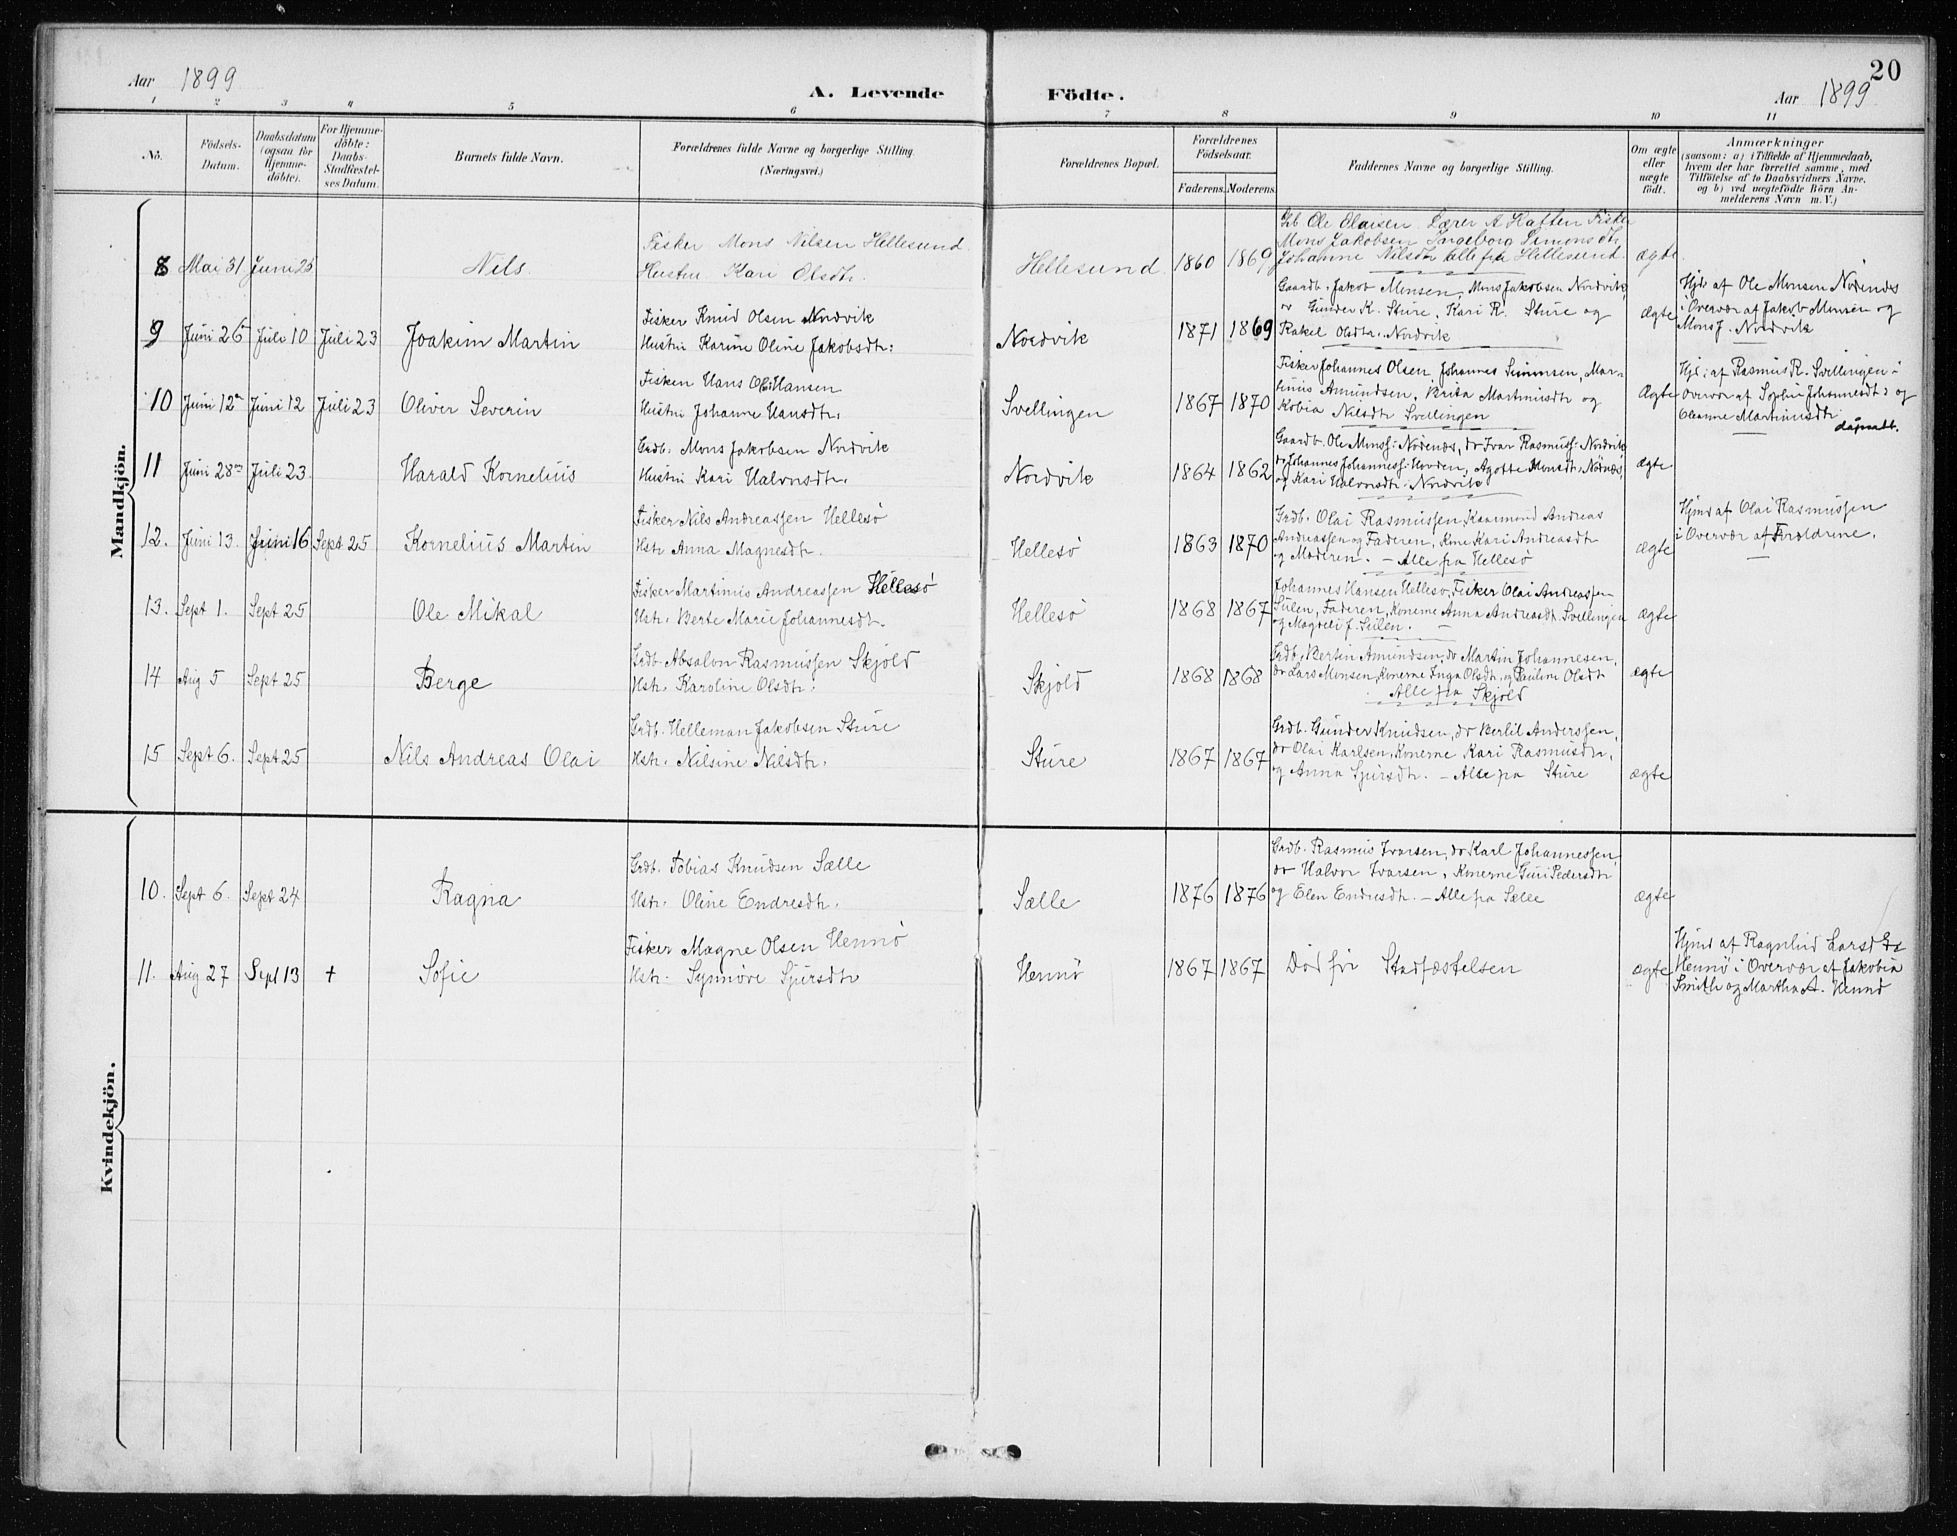 20
Aar 1899
A. Levende Födte.
Aar 1899
1 2 3 4 5 6 7 8 9 10 11
No.
Födsels-Datum.
Daabsdatum (ogsaa for Hjemme-döbte).
For Hjemme-döbte: Daabs-Stadfæstel-ses Datum.
Barnets fulde Navn.
Forældrenes fulde Navne og borgerlige Stilling. (Næringsvei.)
Forældrenes Bopæl.
Forældrenes Födselsaar.
Faderens. Moderens.
Faddernes Navne og borgerlige Stilling.
Om ægte eller uægte födt.
Anmærkninger
(saasom: a) i Tilfælde af Hjemmedaab,
hvem der har forrettet samme, med
Tilföielse af to Daabsvidners Navne,
og b) ved uægtefödte Börn An-
melderens Navn m. V.)
Mandkjön.
8 Mai 31 Juni 25 Nils
Fisker Mons Nilsen Hellesund
Hustru Kari Olsdtr.
Hellesund 1860 1869
Gb Ole Olaisen Lærer A Haften Fisker
Mons Jakobsen Ingeborg Simonsdtr
Johanne Nilsdtr alle fra Hellesund
ægte
9 Juni 26 Juli 10 Juli 23 Joakim Martin
Fisker Knud Olsen Nordvik
Hustru Karine Oline Jakobsdtr:
Nordvik 1871 1869
Gaardb. Jakob Monsen, Mons Jakobsen Nordvik,
Gunder K. Sture, Kari R. Sture og
Rakel Olsdtr. Nordvik
ægte
Hjd. af Ole Monsen Nödenæs
i Overvær af Jakob Monsen og
Mons J. Nordvik
10 Juni 12 Juni 12 Juli 23 Oliver Severin
Fisker Hans Ol: Hansen
Hustru Johanne Hansdtr.
Svellingen 1867 1870
Fisker Johannes Olsen Johannes Simonsen, Mar-
tinus Amundsen, Brita Martinusdtr og
Nilsdtr Svellingen
Ægte
Hjd: af Rasmus R. Svellingen i
Overvær af Sophie Johannesdtr og
Oleanne Martinusdtr.
dåpsatt.
11 Juni 28 Juli 23. Harald Kornelius
Grdb. Mons Jakobsen Nordvik
Hustru Kari Halvorsdtr.
Nordvik 1864 1862
Gaardb. Ole Monss: Nödenæs, do Ivar Rasmuss: Nordvik
do Johannes Johanness: Hovden, Agotte Monsdtr. Nödnæs,
og Kari Halvorsdtr. Nordvik
ægte
12. Juni 13. Juni 16 Sept 25 Kornelius Martin
Fisker Nils Andreassen Hellesö
Hstr. Anna Magnesdtr.
Hellesö 1863 1870
Grdb. Olai Rasmussen, Andreas
Andreassen og Faderen, Kone Kari Andreasdtr
og Moderen. – Alle fra Hellesö
ægte
Hjmd af Olai Rasmussen
i Overvær af Forældrene.
13. Sept 1. Sept 25 Ole Mikal
Fisker Martinus Andreassen Hellesö
Hstr. Berte Marie Johannesdtr.
Hellesö 1868 1867
Johannes Hansen Hellesö, Fisker Olai Andreassen
Seilen, Faderen, Konerne Anna Andreasdtr. Svellingen
og Magreli J. Seilen. –
ægte
14 Aug 5 Sept 25 Berge
Grdb. Absalon Rasmussen Skjold
Hstr. Karoline Olsdtr.
Skjold 1868 1868
Grdb. Bertin Amundsen, do Martin Johannesen,
do Lars Monsen, Konerne Inga Olsdtr. og Pauline Olsdtr
Alle fra Skjold
ægte
15 Sept 6. Sept 25 Nils Andreas Olai
Grdb. Helleman Jakobsen Sture
Hstr. Nilsine Nilsdtr.
Sture 1867 1867
Grdb. Gunder Knudsen, do Bertil Anderssen,
do Olai Karlsen, Konerne Kari Rasmusdtr,
og Anna Sjursdtr. – Alle fra Sture
ægte
Kvindekjön.
10. Sept 6. Sept 24 Ragna
Grdb. Tobias Knudsen Sælle
Hstr. Oline Endresdtr.
Sælle 1876 1876
Grdb. Rasmus Ivarsen, do Karl Johannessen,
do Halvor Ivarsen, Konerne Guri Pedersdtr
og Elen Endresdtr. – Alle fra Sælle
ægte
11. Aug 27 Sept 13 + Sofie
Fisker Magne Olsen Hennö
Hstr. Synnöve Sjursdtr
Hennö 1867 1867
Död för Stadfæstelsen
ægte
Hjmd af Ragnhild Larsdtr
Hennö i Overvær af Jakobia
Smith og Martha A. Hennö